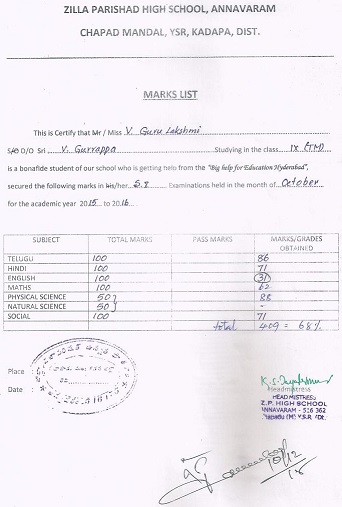 ZILLA PARISHAD HIGH SCHOOL, ANNAVARAM
CHAPAD MANDAL, YSR, KADAPA, DIST.
MARKS LIST
This is Certify that Mr / Miss V. Guru Lakshmi
S/o D/O Sri V. Gurrappa Studying in the class IX (TM)
is a bonafide student of our school who is getting help from the "Big help for Education Hyderabad",
secured the following marks in his/her Examinations held in the month of October
for the academic year 2015 to 2016
SUBJECT TOTAL MARKS PASS MARKS MARKS/GRADES OBTAINED
TELUGU 100 86
HINDI 100 71
ENGLISH 100 31
MATHS 100 62
PHYSICAL SCIENCE 50 88
NATURAL SCIENCE 50 -
SOCIAL 100 71
Total 409 = 68%
Place :
Date :
Headmistress
HEADMISTRESS
Z.P. HIGH SCHOOL
ANNAVARAM - 516 362
10/12